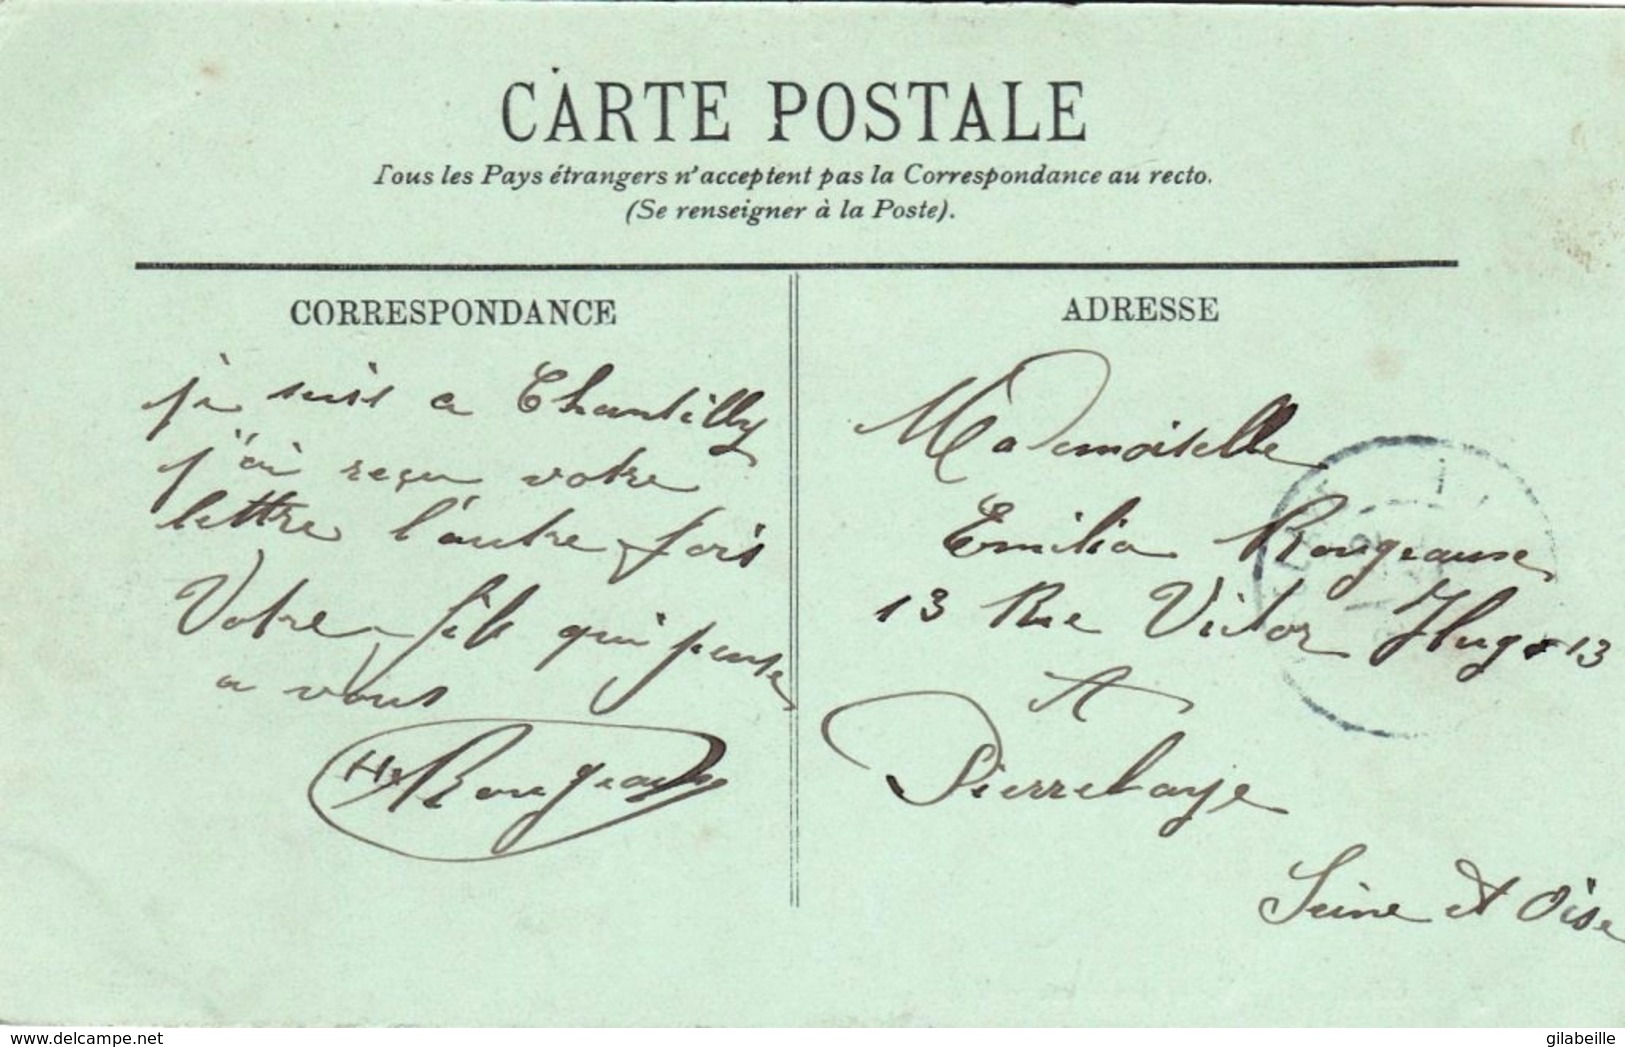 CARTE POSTALE
Tous les Pays étrangers n'acceptent pas la Correspondance au recto.
(Se renseigner à la Poste).
CORRESPONDANCE
je suis a Chantilly
j'ai reçu votre
lettre l'autre fois
Votre fils qui pense
a vous
ADRESSE
Mademoiselle
Emilia
13 Rue Victor Hugo 13
A
Pierrelaye
Seine et Oise
delcampe.net
gilabeille